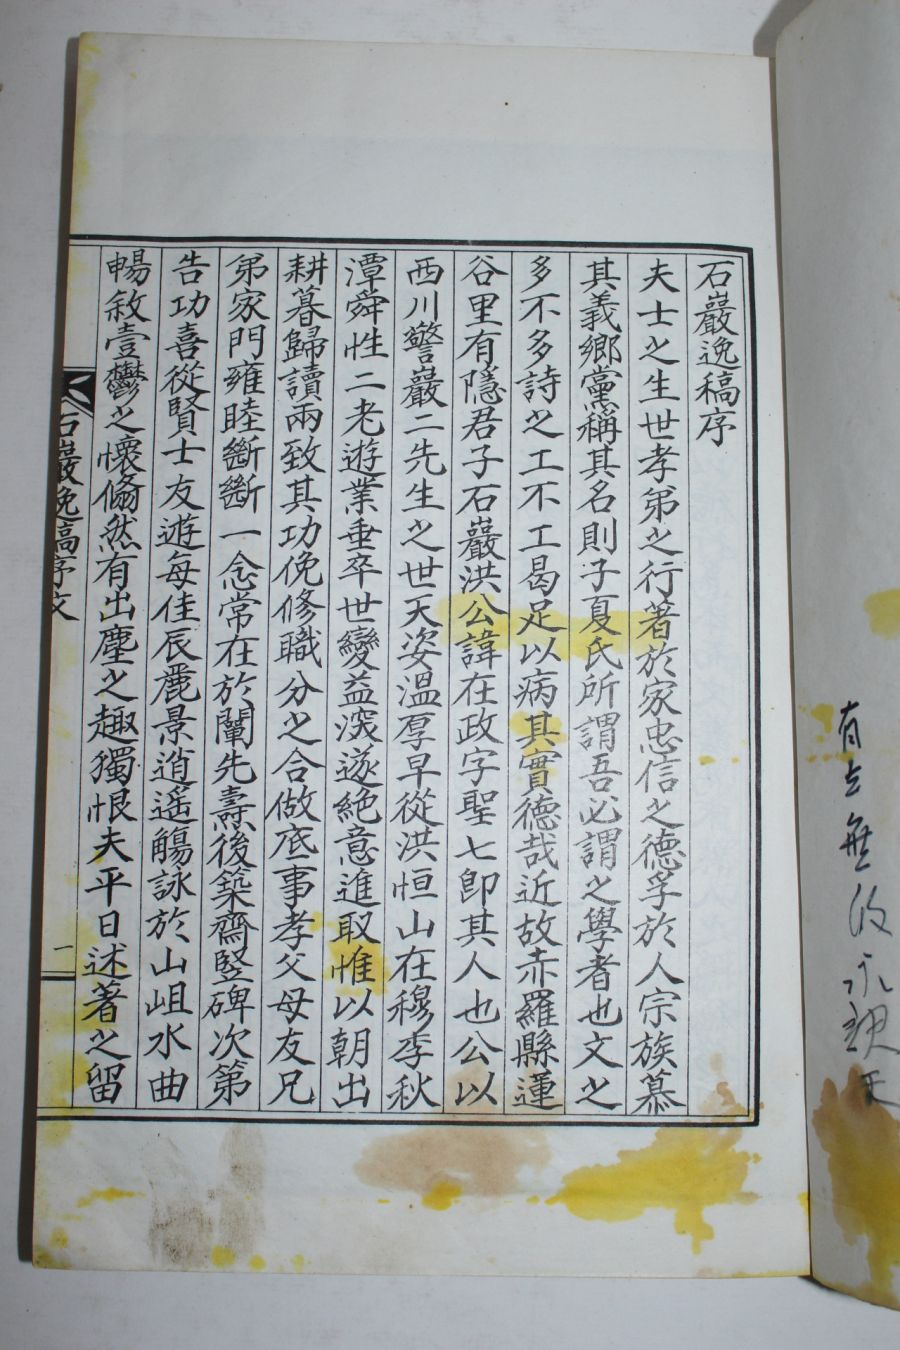 石巖逸稿序
夫士之生世孝弟之行著於家忠信之德孚於人宗族慕
其義鄉黨稱其名則子夏氏所謂吾必謂之學者也文之
多不多詩之工不工曷足以病其實德哉近故赤羅縣蓮
谷里有隱君子石巖洪公諱在政字聖七卽其人也公以
西川警巖二先生之世天姿溫厚早從洪恒山在穆李秋
潭舜性二老遊業垂卒世變益滾遂絶意進取惟以朝出
耕暮歸讀兩致其功俛修職分之合做底事孝父母友兄
弟家門雍睦斷斷一念常在於闡先燾後築齋竪碑次第
告功喜從賢士友遊每佳辰麗景逍遙觴詠於山岨水曲
暢敘壹鬱之懷翛然有出塵之趣獨恨夫平日述著之留
石巖逸稿序文
一
有 無